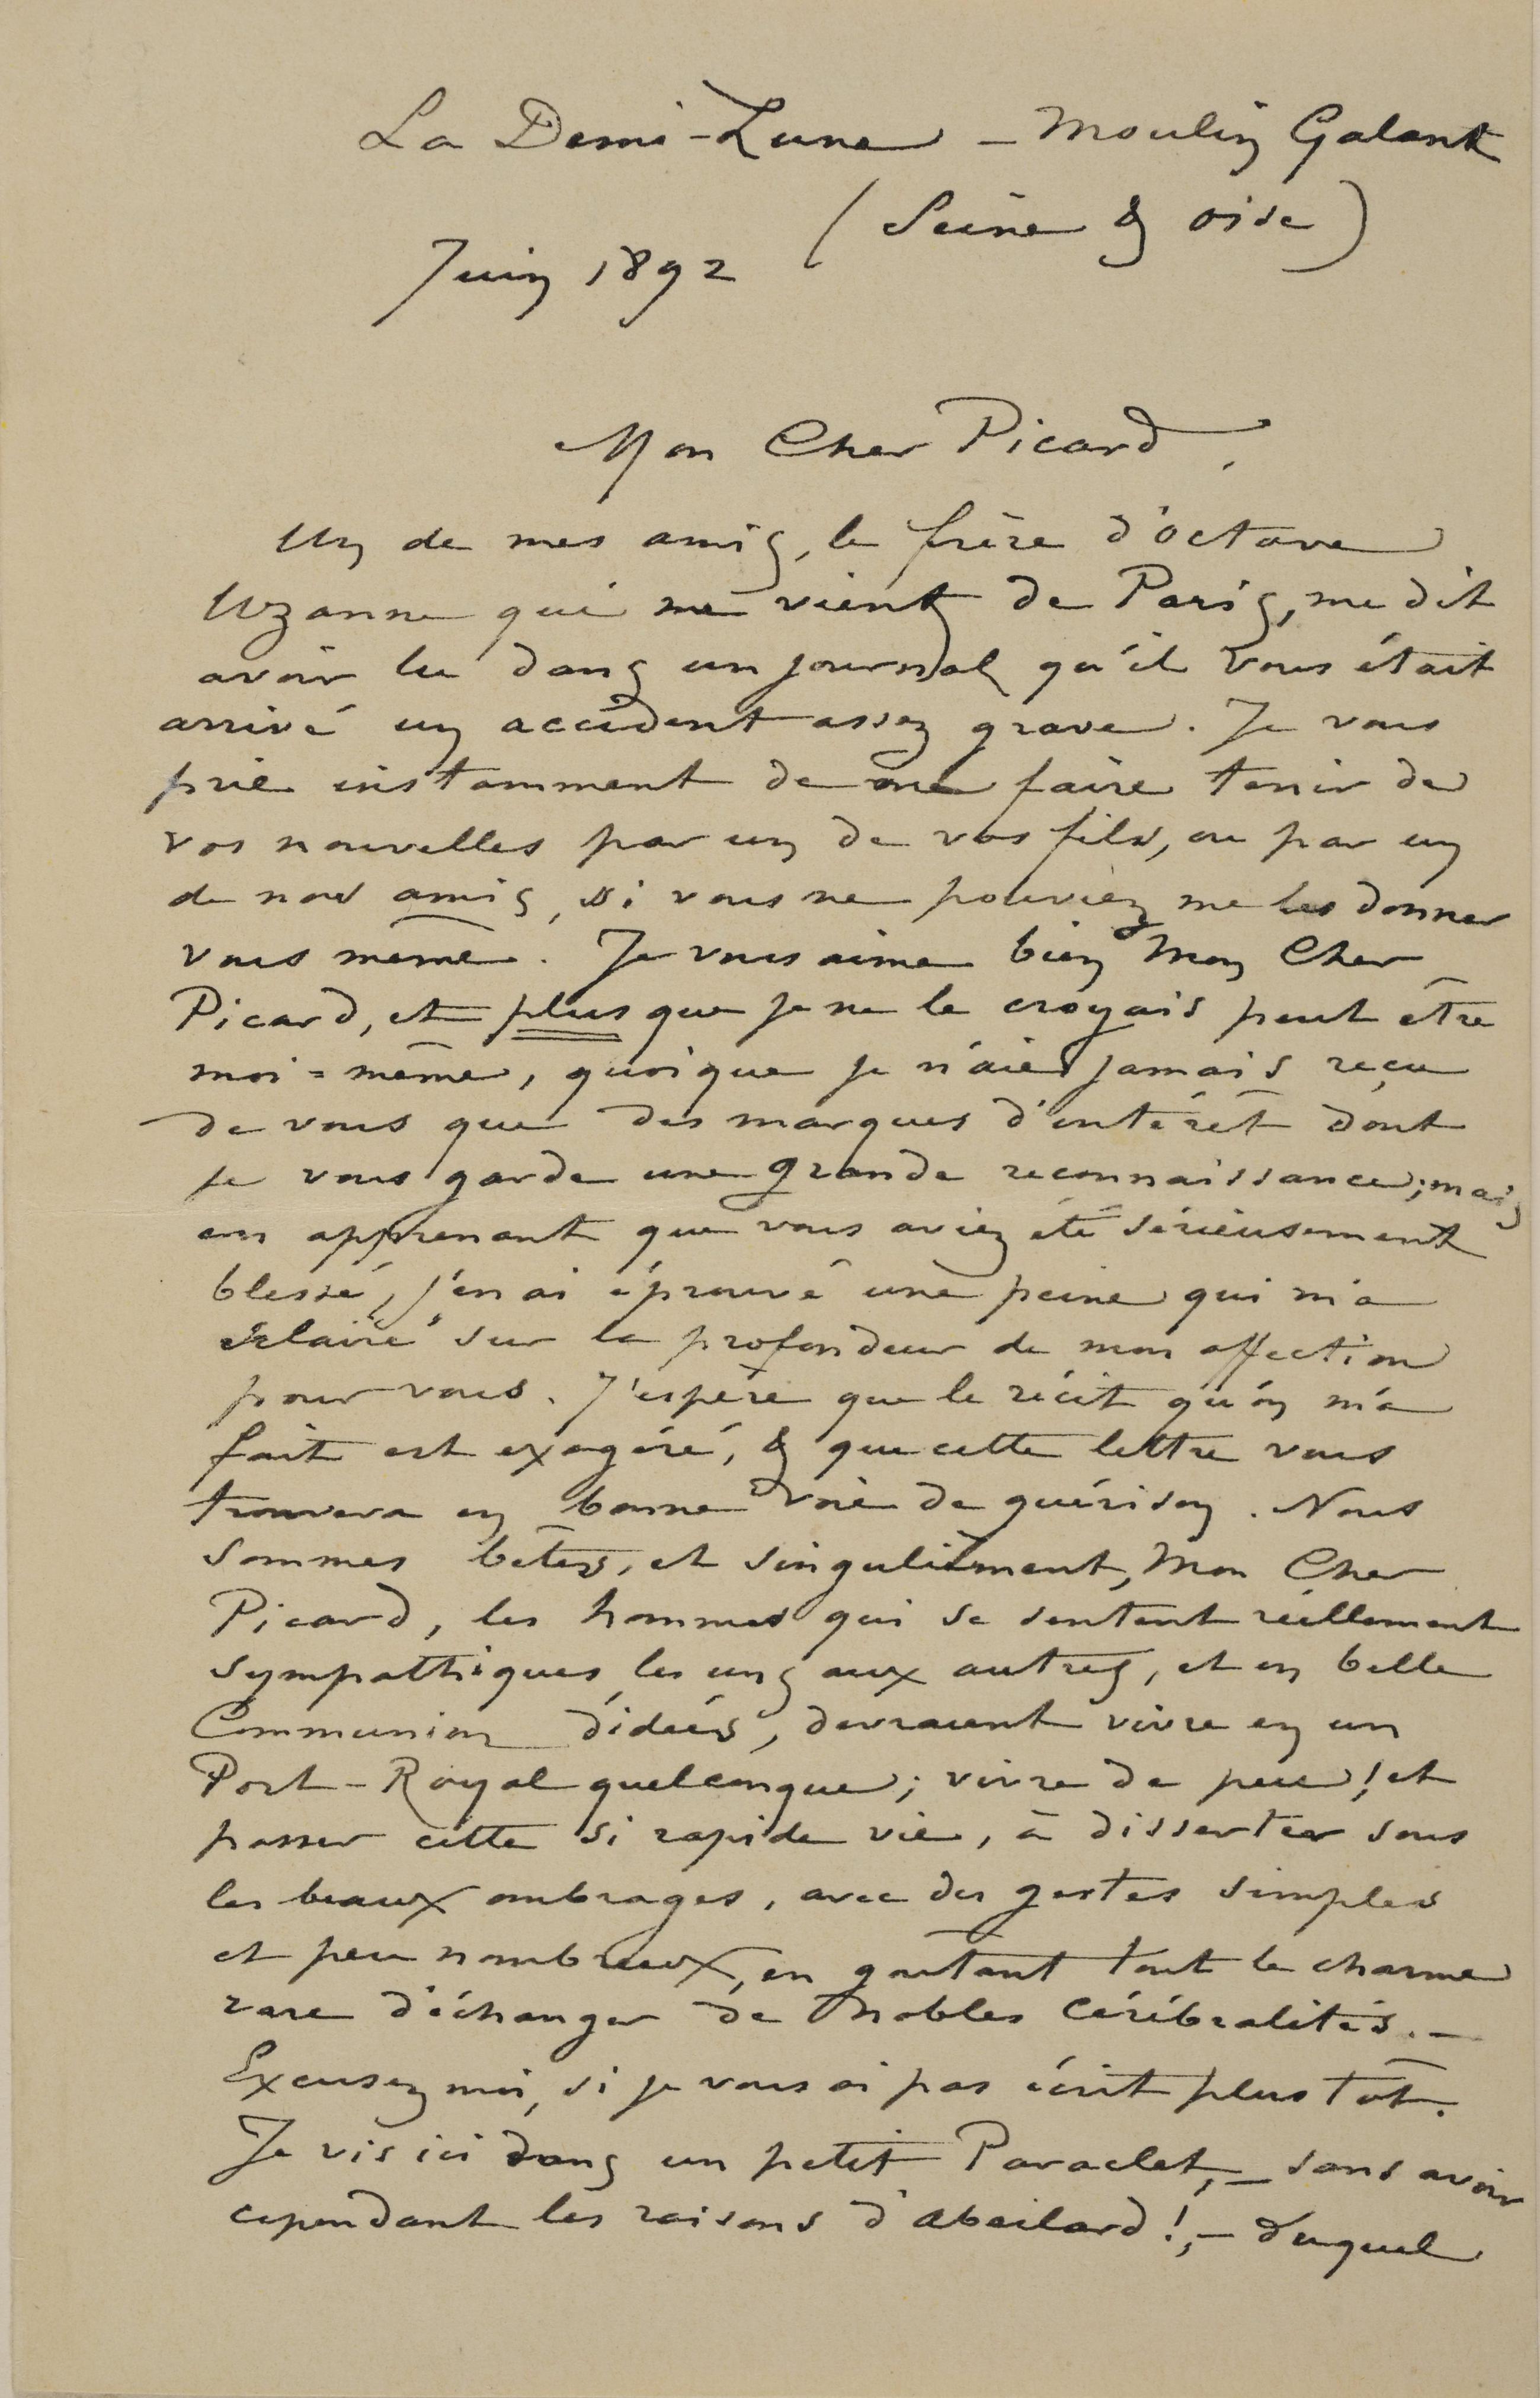 La Demi-Lune – Moulin Galant
(Seine & oise)
Juin 1892
Mon Cher Picard,
Un de mes amis, le frère d'Octave
Uzanne qui me vient de Paris, me dit
avoir lu dans un journal qu'il vous était
arrivé un accident assez grave. Je vous
prie instamment de me faire tenir de
vos nouvelles par un de vos fils, ou par un
de nos amis, si vous ne pouviez me les donner
vous même. Je vous aime bien Mon Cher
Picard, et plus que je ne le croyais peut être
moi=même, quoique je n'aie jamais reçu
de vous que des marques d'intérêt dont
je vous garde une grande reconnaissance; mais
en apprenant que vous aviez été sérieusement
blessé, j'en ai éprouvé une peine qui m'a
éclairé sur la profondeur de mon affection
pour vous. J'espère que le récit qu'on m'a
fait est exagéré, & que cette lettre vous
trouvera en bonne voie de guérison. Nous
sommes bêtes, et singulièrment, Mon Cher
Picard, les hommes qui se sentent réellement
sympathiques les uns aux autres, et en belle
Communion d'idées, devraient vivre en un
Port-Royal quelconque; vivre de peu! et
passer cette si rapide vie, à disserter sous
les beaux ombrages, avec des gestes simples
et peu nombreux, en goûtant tout le charme
rare d'échanger de nobles Cérébralités. –
Excusez moi, si je vous ai pas écrit plus tôt.
Je vis ici dans un petit Paraclet, – sans avoir
cependant les raisons d'Abeilard!, – duquel